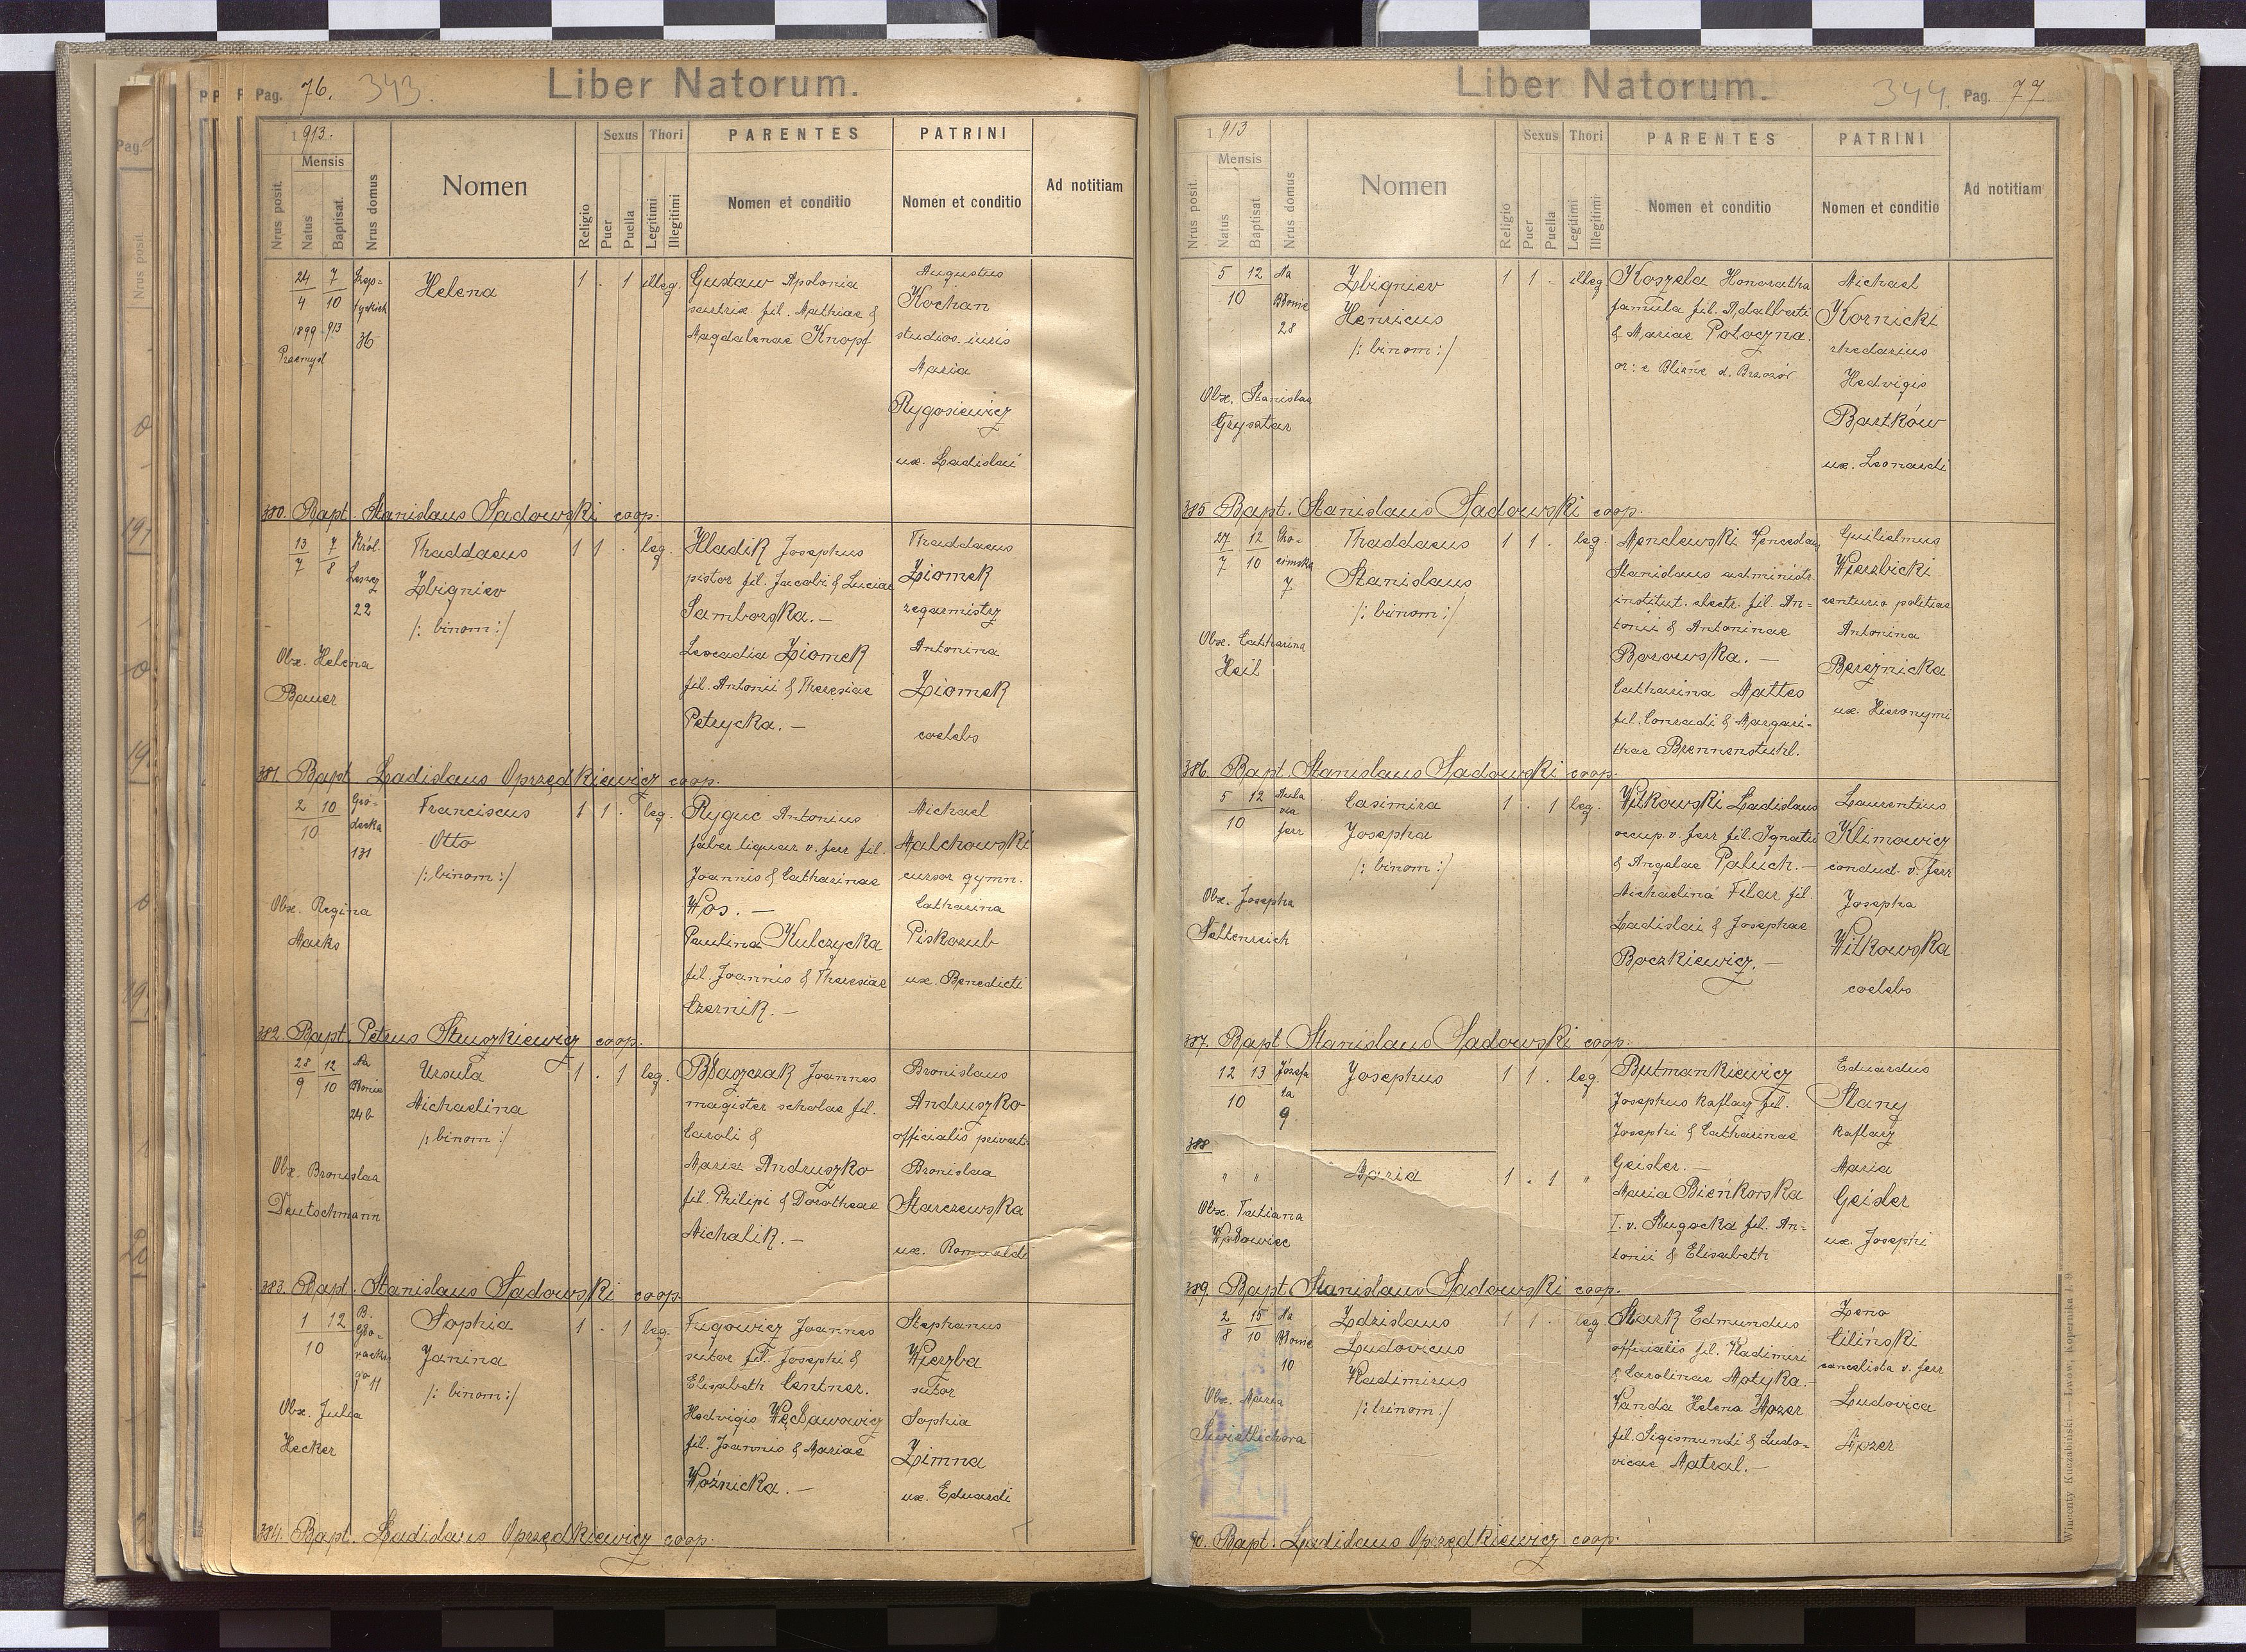 Pag. 76. 343.
Liber Natorum.
1913.
Nrus posit.
Mensis
Natus
Baptisat.
Nrus domus
Nomen
Religio
Sexus
Puer
Puella
Thori
Legitimi
Illegitimi
PARENTES
Nomen et conditio
PATRINI
Nomen et conditio
Ad notitiam
24 7
4 10
1899 913
Przemyśl
36
Helena
1 . 1 illeg.
Gustaw Apolonia
sartrix fil. Mathiae &
Magdalenae Knopf
Augustus
Kochan
studios. iuris
Maria
Rygosiewicz
ux. Ladislai
380. Bapt. Stanislaus Sadowski coop.
13 7
7 8
Król.
Leszcz
22
Thaddaeus
Zbigniev
/: binom :/
1 1 . leg.
Obx. Helena
Bauer
Hladik Josephus
pistor fil. Jacobi & Luciae
Samborska. —
Leocadia Ziomek
fil. Antonii & Theresiae
Petrycka. —
Thaddaeus
Ziomek
zegarmistrz
Antonina
Ziomek
coelebs
381. Bapt. Ladislaus Oprzędkiewicz coop.
2 10
10
Gró-
decka
131
Franciscus
Otto
/: binom :/
1 1 . leg.
Obx. Regina
Marks
Ryguc Antonius
faber liquar v. ferr fil.
Joannis & Catharinae
Wos. —
Paulina Kulczycka
fil. Joannis & Theresiae
Czernik. —
Michael
Malchowski
cursor gymn.
Catharina
Piskozub
ux. Benedicti
382. Bapt. Petrus Stuszkiewicz coop.
28 12
9 10
Na
Błonie
24b
Ursula
Michaelina
/: binom :/
1 . 1 leg.
Obx. Bronislaa
Deutschmann
Błaszczak Joannes
magister scholae fil.
Caroli &
Maria Andruszko
fil. Philipi & Dorotheae
Michalik. —
Bronislaus
Andruszko
officialis privat.
Bronislaa
Starczewska
ux. Romualdi
383. Bapt. Stanislaus Sadowski coop.
1 12
10
B.
Gło-
wackie
go 11
Sophia
Janina
/: binom :/
1 . 1 leg.
Obx. Julia
Hecker
Fugowicz Joannes
sutor fil. Josephi &
Elisabeth Centner.
Hedvigis Węcławowicz
fil. Joannis & Mariae
Woźnicka. —
Stephanus
Wierzba
sutor
Sophia
Zimna
ux. Eduardi
384. Bapt. Ladislaus Oprzędkiewicz coop.
Liber Natorum.
344. Pag. 77
1913
Nrus posit.
Mensis
Natus
Baptisat.
Nrus domus
Nomen
Religio
Sexus
Puer
Puella
Thori
Legitimi
Illegitimi
PARENTES
Nomen et conditio
PATRINI
Nomen et conditio
Ad notitiam
5 12
10
Na
Błonie
28
Zbigniev
Henricus
/: binom :/
1 1 . illeg
Obx. Stanislaa
Grysztar
Koszela Honoratha
famula fil. Adalberti
& Mariae Potoczna.
Michael
Kornicki
rhedarius
Hedvigis
Bartków
ux. Leonardi
385 Bapt. Stanislaus Sadowski coop.
27 12
7 10
Cho-
cimska
7
Thaddaeus
Stanislaus
/: binom :/
1 1 . leg.
Obx. Catharina
Heil
Menclewski Venceslaus
Stanislaus administr.
institut. electr. fil. An-
tonii & Antoninae
Borowska. —
Catharina Mattes
fil. Conradi & Margari-
thae Brennenstuhl.
Guilielmus
Wierzbicki
centurio politiae
Antonina
Bereżnicka
ux. Hieronymi
386. Bapt. Stanislaus Sadowski coop.
5 12
10
Aula
via
ferr
Casimira
Josepha
/: binom :/
1 . 1 leg.
Obx. Josepha
Seltenreich
Witkowski Ladislaus
occup. v. ferr fil. Ignatii
& Angelae Paluch. —
Michaelina Filar fil.
Ladislai & Josephae
Boczkiewicz. —
Laurentius
Klimowicz
conduct. v. ferr
Josepha
Witkowska
coelebs
387. Bapt Stanislaus Sadowski coop.
12 13
10
Józefa
ta
9
Josephus
1 1 . leg.
388
" "
Maria
1 . 1 "
Obx. Tatiana
Wdowiec
Butmankiewicz
Josephus kaflarz fil.
Josephi & Catharinae
Geisler. —
Maria Bieńkorska
I. v. Sługocka fil. An-
tonii & Elisabeth
Eduardus
Stany
kaflarz
Maria
Geisler
ux. Josephi
389 Bapt Stanislaus Sadowski coop.
2 15
8 10
Na
Błonie
10
Zdzislaus
Ludovicus
Wladimirus
/: trinom :/
1 1 . leg
Obx. Maria
Swietlichora
Stark Edmundus
officialis fil. Wladimiri
& Carolinae Motyka. —
Vanda Helena Mozer
fil. Sigismundi & Ludo-
vicae Matral. —
Zeno
Ciliński
cancelista v. ferr
Ludovica
Mozer
90. Bapt. Ladislaus Oprzędkiewicz coop.
Wincenty Kuczabiński. — Lwów, Kopernika l. 9